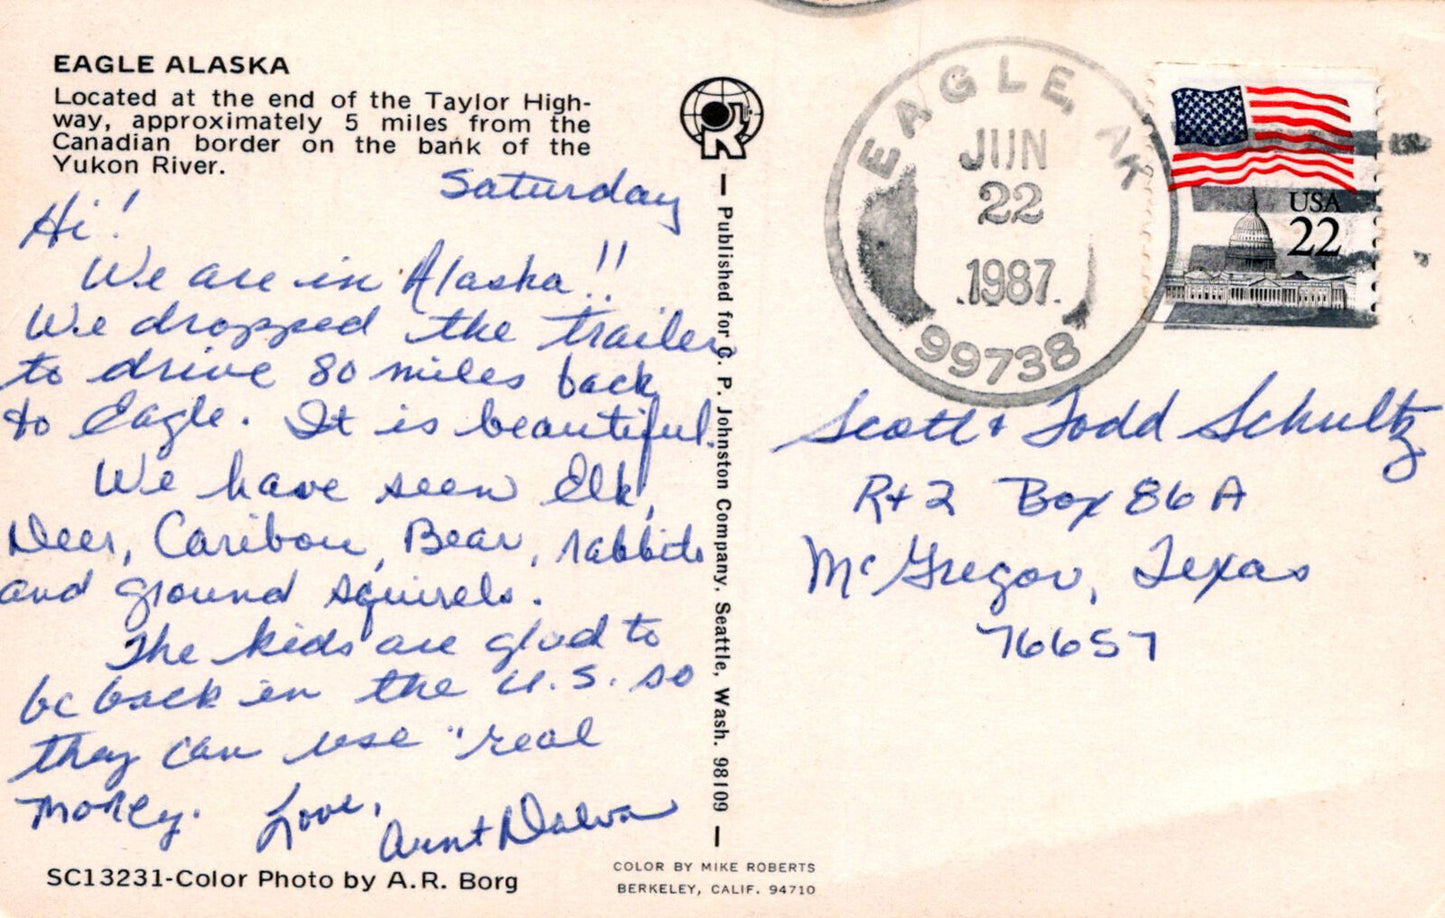 EAGLE ALASKA
Located at the end of the Taylor High-
way, approximately 5 miles from the
Canadian border on the bank of the
Yukon River.
Saturday
Hi!
We are in Alaska!!
We dropped the trailer
to drive 80 miles back
to Eagle. It is beautiful.
We have seen Elk,
Deer, Caribou, Bear, rabbits
and ground squirels.
The kids are glad to
be back in the U.S. so
they can use "real
money.
Love,
Aunt Dalva
SC13231-Color Photo by A.R. Borg
R
Published for C. P. Johnston Company, Seattle, Wash. 98109
COLOR BY MIKE ROBERTS
BERKELEY, CALIF. 94710
EAGLE, AK
JUN
22
1987
99738
USA
22
Scott & Todd Schultz
Rt 2 Box 86 A
McGregor, Texas
76657